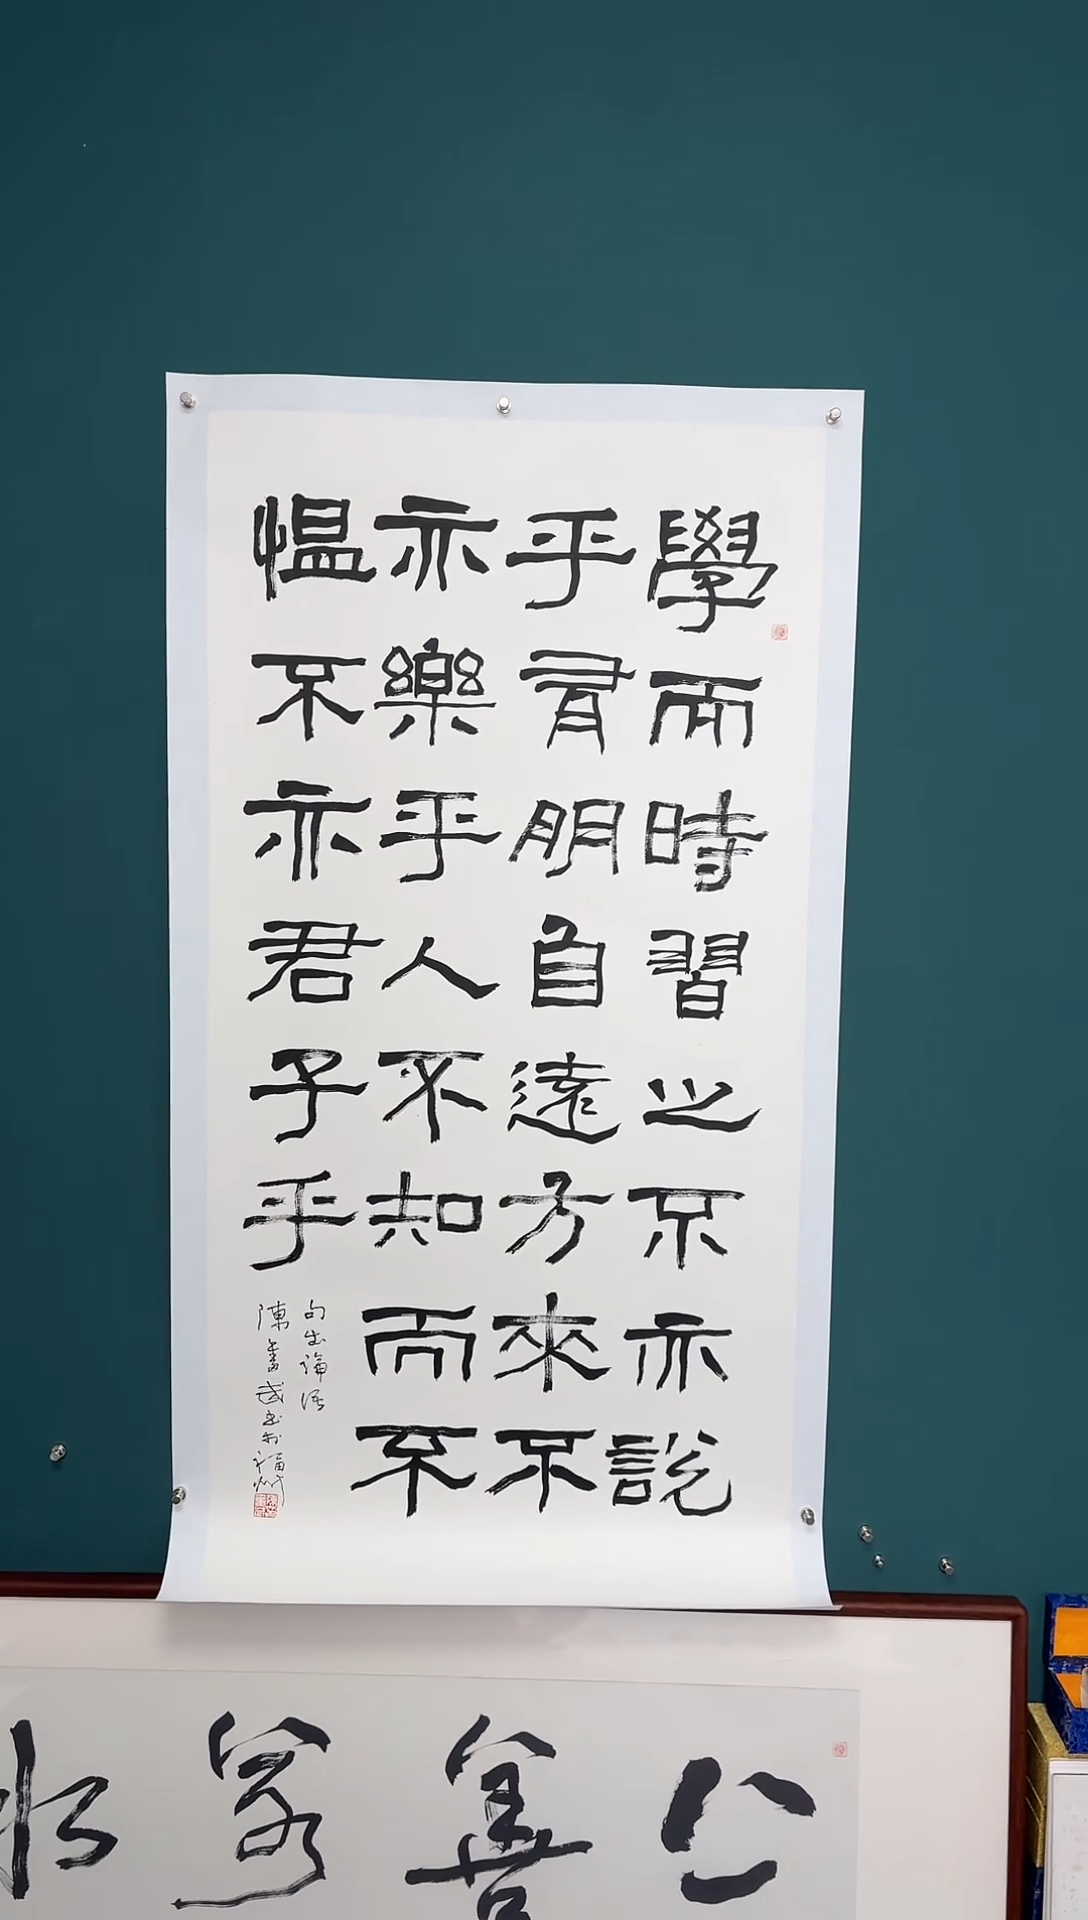 學而時習之不亦說
乎有朋自遠方來不
亦樂乎人不知而不
愠不亦君子乎
句出論語
上善若水